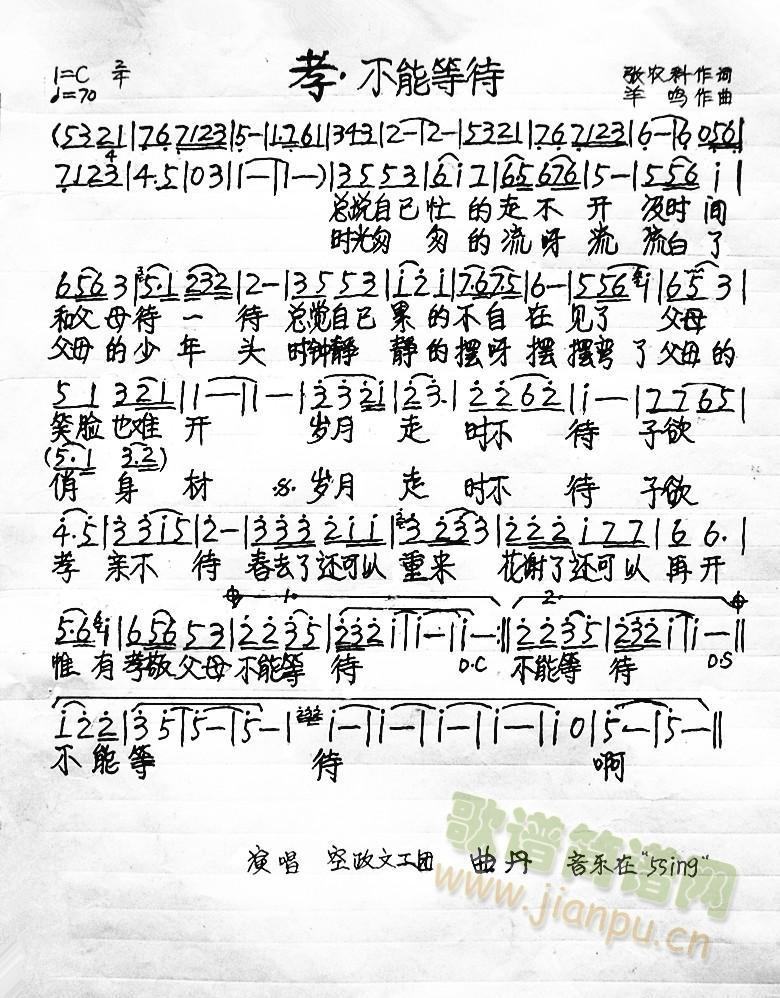 孝·不能等待
1=C 2/4
♩=70
张农科作词
羊鸣作曲
(5321|767123|5-|1761|343|2-|2-|5321|767123|6-|6056|
7123|4.5|03|1-|1-)|3553|6i7|65676|5-|556i|
总说自己忙的走不开没时间
时光匆匆的流呀流流白了
6563|5.1232|2-|3553|i2i|7.675|6-|556i|653|
和父母待一待总觉自己累的不自在见了父母
父母的少年头时钟静静的摆呀摆摆弯了父母的
51321|1-|1-|3321|23.|2262|i-|7765|
笑脸也难开岁月走时不待子欲
(5.1 3.2)
俏身材岁月走时不待子欲
4.5|33i5|2-|3332ii|3233|222i77|66.|
孝亲不待春去了还可以重来花谢了还可以再开
5.6i|65653|2235|232i|i-|i-:||2235|232i|i-||
1.
2.
惟有孝敬父母不能等待 D.C 不能等待 D.S
i22|35|5-|5-|i-|i-|i-|i-|i0|5-|5-||
不能等待啊
演唱 空政文工团 曲丹 音乐在"55ing"
歌谱简谱网
www.jianpu.cn